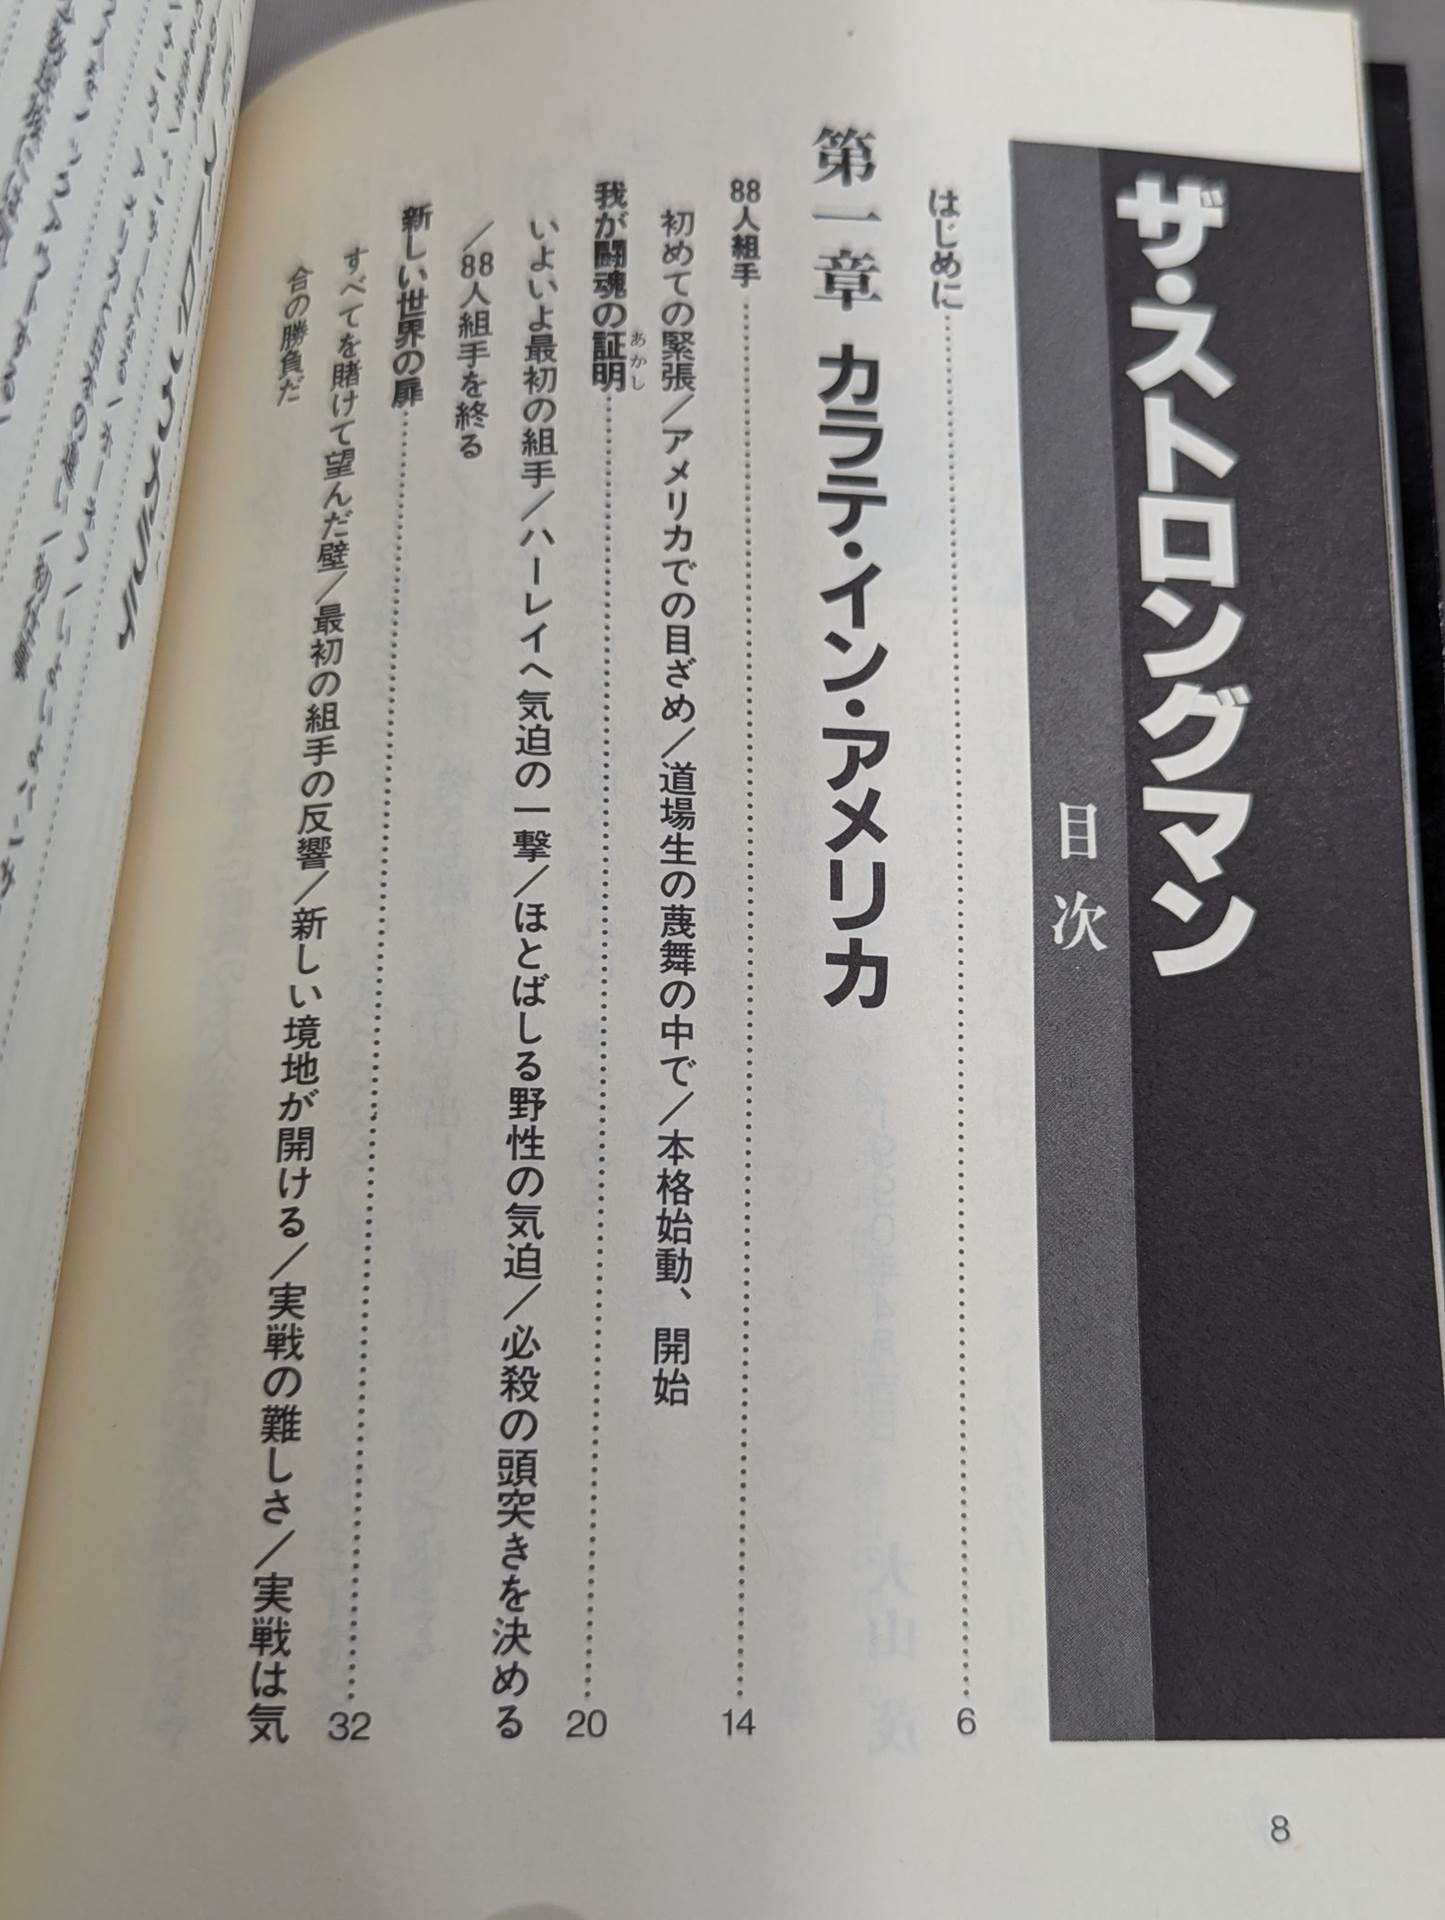 ザ・ストロングマン
目次
はじめに……6
第一章 カラテ・イン・アメリカ
88人組手……14
初めての緊張／アメリカでの目ざめ／道場生の蔑舞の中で／本格始動、開始
我が闘魂の証明……20
あかし
いよいよ最初の組手／ハーレイへ気迫の一撃／ほとばしる野性の気迫／必殺の頭突きを決める
／88人組手を終る
新しい世界の扉……32
すべてを賭けて望んだ壁／最初の組手の反響／新しい境地が開ける／実戦の難しさ／実戦は気
合の勝負だ
8